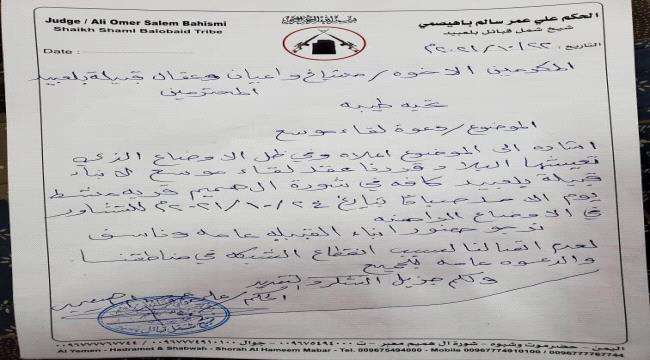 Judge / Ali Omer Salem Bahismi
Shaikh Shaml Balobaid Tribe
Date :
الحكم علي عمر سالم باهيصمي
شيخ شمل قبائل بلعبيد
التاريخ: ٢٢/ ١٠/ ٢٠٢١م
المكرمين الاخوه / مشايخ واعيان وعقال قبيلة بلعبيد
المحترمين
تحيه طيبه
الموضوع / دعوة لقاء موسع
اشاره الى الموضوع اعلاه وفي ظل الاوضاع الذي
تعيشها البلاد قررنا عقد لقاء موسع لابناء
قبيلة بلعبيد كافه في شورة ال هميم
يوم الاحد صباحا تاريخ ٢٤/ ١٠/ ٢٠٢١م للتشاور
في الاوضاع الراهنه
نرجو حضور ابناء القبيله عامه وناسف
لعدم اتصالنا لسبب انقطاع الشبكه في مناطقنا
والدعوه عامه للجميع
ولكم جزيل الشكر والتقدير
الحكم علي عمر
اليمن - حضرموت وشبوه - شورة ال هميم معبر - ت: ٠٠٩٦٧٥٤٩٤٠٠٠ - جوال: ٠٠٩٦٧٧٧٤٩١٠١٠٠ / ٠٠٩٦٧٧٧٧٦٧٧٤٤
Al Yemen - Hadramot & Shabwah - Shorah Al Hameem Mabar - Tel: 009675494000 - Mobile 00967774910100 / 00967777767744